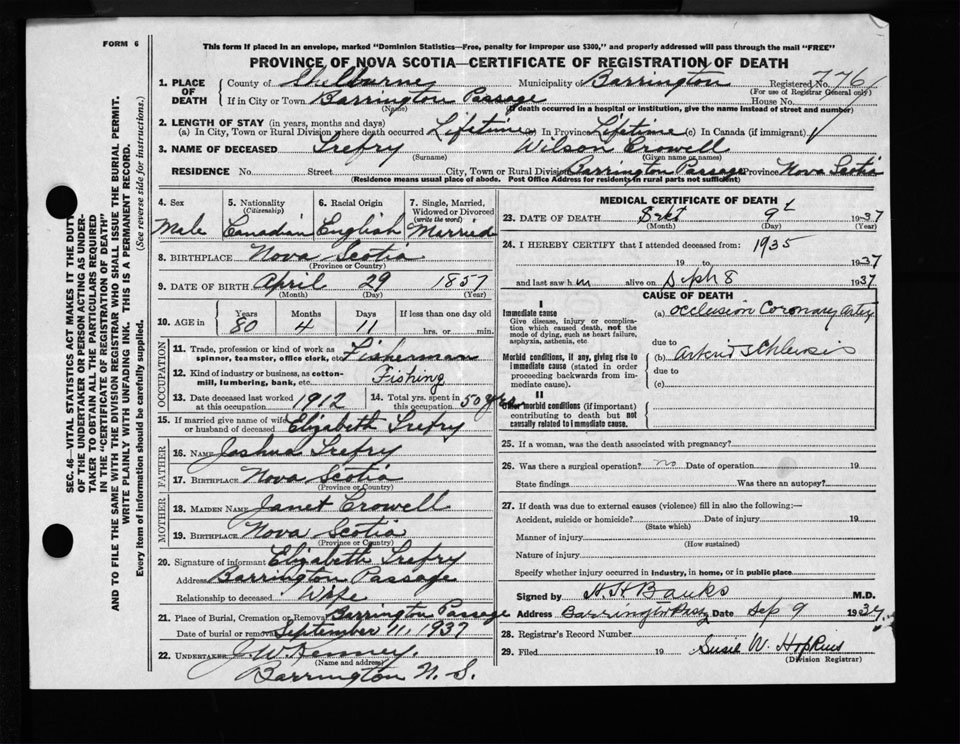 FORM 6
This form if placed in an envelope, marked "Dominion Statistics—Free, penalty for improper use $300," and properly addressed will pass through the mail "FREE"
PROVINCE OF NOVA SCOTIA—CERTIFICATE OF REGISTRATION OF DEATH
SEC. 46—VITAL STATISTICS ACT MAKES IT THE DUTY
OF THE UNDERTAKER OR PERSON ACTING AS UNDER-
TAKER TO OBTAIN ALL THE PARTICULARS REQUIRED
IN THE "CERTIFICATE OF REGISTRATION OF DEATH"
AND TO FILE THE SAME WITH THE DIVISION REGISTRAR WHO SHALL ISSUE THE BURIAL PERMIT.
WRITE PLAINLY WITH UNFADING INK. THIS IS A PERMANENT RECORD.
Every item of information should be carefully supplied. (See reverse side for instructions.)
1. PLACE OF DEATH County of Shelburne Municipality of Barrington Registered No. 776
(For use of Registrar General only)
If in City or Town Barrington Passage House No.
(Name) (If death occurred in a hospital or institution, give the name instead of street and number)
2. LENGTH OF STAY (in years, months and days)
(a) In City, Town or Rural Division where death occurred Lifetime (b) In Province Lifetime (c) In Canada (if immigrant)
3. NAME OF DECEASED Trefry Wilson Crowell
(Surname) (Given name or names)
RESIDENCE No. Street City, Town or Rural Division Barrington Passage Province Nova Scotia
(Residence means usual place of abode. Post Office Address for residents in rural parts not sufficient)
4. Sex 5. Nationality (Citizenship) 6. Racial Origin 7. Single, Married, Widowed or Divorced (write the word)
Male Canadian English Married
8. BIRTHPLACE Nova Scotia
(Province or Country)
9. DATE OF BIRTH April 29 1857
(Month) (Day) (Year)
10. AGE in Years Months Days If less than one day old
80 4 11 hrs. or min.
OCCUPATION
11. Trade, profession or kind of work as spinner, teamster, office clerk, etc. Fisherman
12. Kind of industry or business, as cotton-mill, lumbering, bank, etc. Fishing
13. Date deceased last worked at this occupation 1912 14. Total yrs. spent in this occupation 50 yrs.
15. If married give name of wife or husband of deceased Elizabeth Trefry
FATHER
16. Name Joshua Trefry
17. Birthplace Nova Scotia
(Province or Country)
MOTHER
18. Maiden Name Janet Crowell
19. Birthplace Nova Scotia
(Province or Country)
20. Signature of informant Elizabeth Trefry
Address Barrington Passage
Relationship to deceased Wife
21. Place of Burial, Cremation or Removal Barrington Passage
Date of burial or removal September 11, 1937
22. Undertaker J. W. Kenney
(Name and address)
Barrington N. S.
MEDICAL CERTIFICATE OF DEATH
23. DATE OF DEATH Sept 9t 1937
(Month) (Day) (Year)
24. I HEREBY CERTIFY that I attended deceased from: 1935
19 to 1937
and last saw him alive on Sept 8 1937
CAUSE OF DEATH
I
Immediate cause
Give disease, injury or complication which caused death, not the mode of dying, such as heart failure, asphyxia, asthenia, etc.
(a) Occlusion Coronary Artery
due to
Morbid conditions, if any, giving rise to immediate cause (stated in order proceeding backwards from immediate cause).
(b)
due to
(c)
II
Other morbid conditions (if important) contributing to death but not causally related to immediate cause.
25. If a woman, was the death associated with pregnancy?
26. Was there a surgical operation? no Date of operation 19
State findings Was there an autopsy?
27. If death was due to external causes (violence) fill in also the following:—
Accident, suicide or homicide? Date of injury 19
(State which)
Manner of injury
(How sustained)
Nature of injury
Specify whether injury occurred in industry, in home, or in public place
Signed by H. H. Banks M.D.
Address Barrington Psg Date Sep 9 1937
28. Registrar's Record Number
29. Filed 19 Susie W. Hopkins
(Division Registrar)